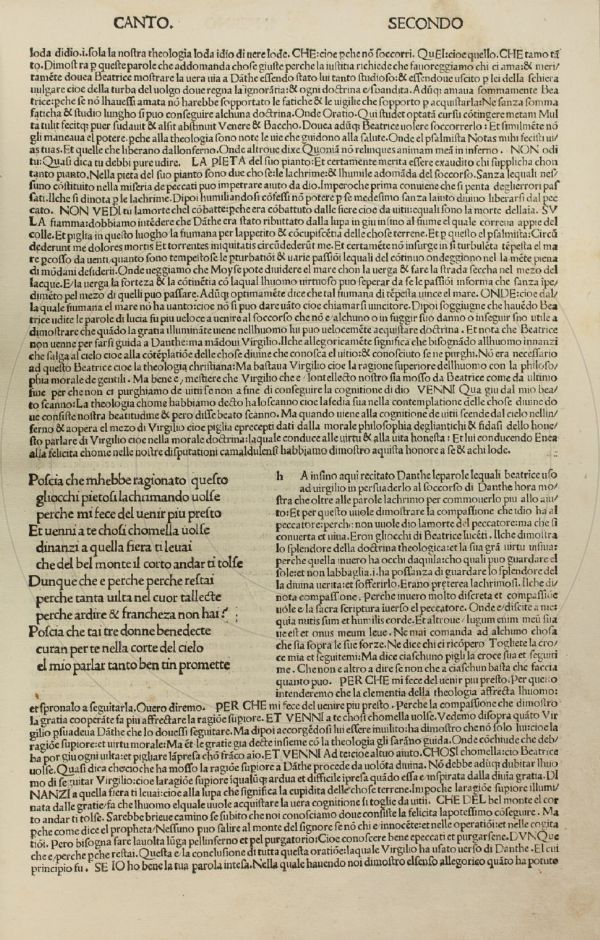 CANTO. SECONDO
loda didio.i.sola la nostra theologia loda idio di uere lode. CHE:cioe pche nō soccorri. QuEl:cioe quello. CHE tamo tā
to. Dimostra p queste parole che addomanda chose giuste perche la iustitia richiede che fauoreggiamo chi ci ama:& meri/
tamēte douea Beatrice mostrare la uera uia a Dāthe essendo stato lui tanto studioso:& essendoue uscito p lei della schiera
uulgare cioe della turba del uolgo doue regna la ignorātia:& ogni doctrina e sbandita. Adūq; amaua sommamente Bea
trice:pche se nō lhauessi amata nō harebbe sopportato le fatiche & le uigilie che sopporto p acquistarla: Ne sanza somma
faticha & studio lungho si puo conseguire alchuna doctrina. Onde Oratio. Qui studet optatā cursu cōtingere metam Mul
ta tulit fecitq; puer sudauit & alsit abstinuit Venere & Baccho. Douea adūq; Beatrice uolere soccorrerlo: Et similmēte nō
gli mancaua el potere. pche alla theologia sono note le uie che guidono alla salute. Onde el psalmista Notas mihi fecisti ui/
as tuas. Et quelle che liberano dallonferno. Onde altroue dixe Quoniā nō relinques animam meā in inferno. NON odi
tu: Quasi dica tu debbi pure udire. LA PIETA del suo pianto: Et certamente merita essere exaudito chi supplica chon
tanto pianto. Nella pieta del suo pianto sono due chose:le lachrime:& lhumile adomāda del soccorso. Sanza lequali nes/
suno cōstituito nella miseria de peccati puo impetrare aiuto da dio. Imperoche prima conuiene che si penta deglierrori pas
sati. Ilche si dinota p le lachrime. Dipoi humiliandosi cōfessi nō potere p se medesimo sanza laiuto diuino liberarsi dal pec
cato. NON VEDI tu lamorte chel cōbatte:pche era cōbattuto dalle fiere cioe da uitii:equali sono la morte dellaīa. SV
LA fiamma:dobbiamo intēdere che Dāthe era stato ributtato dalla lupa in giu insino al fiume el quale correua appie del
colle. Et piglia in questo luogho la fiumana per lappetito & cōcupiscētia delle chose terrene. Et p questo el psalmista: Circū
dederunt me dolores mortis Et torrentes iniquitatis circūdederūt me. Et certamēte nō insurge in si turbulēta tēpesta el ma
re pcosso da uenti. quanto sono tempestose le pturbatiōi & uarie passiōi lequali del cōtinuo ondeggiono nel la mēte piena
di mōdani desiderii. Onde ueggiamo che Moyse pote diuidere el mare chon la uerga & fare la strada seccha nel mezo del
lacque. E/la uerga la forteza & la cōtinētia cō laqual lhuomo uirtuoso puo seperar da se le passiōi informa che sanza ipe/
dimēto pel mezo di quelli puo passare. Adūq; optimamēte dice che tal fiumana di tēpesta uince el mare. ONDE:cioe dal/
la quale fiumana el mare no ha uanto:cioe nō si puo dare uāto cioe chiamarsi uincitore. Dipoi soggiugne che hauēdo Bea
trice udite le parole di lucia fu piu ueloce a uenire al soccorso che nō e/alchuno o in fuggir suo danno o inseguir suo utile a
dimostrare che quādo la gratia illumināte uiene nellhuomo lui puo uelocemēte acquistare doctrina. Et nota che Beatrice
non uenne per farsi guida a Danthe:ma mādoui Virgilio. Ilche allegoricamēte significa che bisognādo allhuomo innanzi
che salga al cielo cioe alla cōtēplatiōe delle chose diuine che conosca el uitio:& conosciuto se ne purghi. Nō era necessario
ad questo Beatrice cioe la theologia christiana: Ma bastaua Virgilio cioe la ragione superiore dellhuomo con la philoso/
phia morale de gentili. Ma bene e/mestiere che Virgilio che e/lontellecto nostro sia mosso da Beatrice come da ultimo
fine per che non ci purghiamo de uitii se non a fine di conseguire la cognitione di dio. VENNI Qua giu dal mio bea/
to scanno: La theologia chome habbiamo decto ha lo scanno cioe lasedia sua nella contemplatione delle chose diuine do
ue consiste nostra beatitudine & pero disse beato scanno. Ma quando uiene alla cognitione de uitii scende dal cielo nellin/
ferno & aopera el mezo di Virgilio cioe piglia eprecepti dati dalla morale philosophia deglianthichi & fidasi dello hone/
sto parlare di Virgilio cioe nella morale doctrina:laquale conduce alle uirtu & alla uita honesta: Et lui conducendo Enea
alla felicita chome nelle nostre disputationi camaldulensi habbiamo dimostro aquista honore a se & achi lode.
Poscia che mhebbe ragionato questo
gliocchi pietosi lachrimando uolse
perche mi fece del uenir piu presto
Et uenni a te chosi chomella uolse
dinanzi a quella fiera ti leuai
che del bel monte il corto andar ti tolse
Dunque che e perche perche restai
perche tanta uilta nel cuor tallecte
perche ardire & francheza non hai?
Poscia che tai tre donne benedecte
curan per te nella corte del cielo
el mio parlar tanto ben tin promette
h A insino aqui recitato Danthe leparole lequali beatrice uso
ad uirgilio in persuaderlo al soccorso di Danthe hora mo/
stra che oltre alle parole lachrimo per commouerlo piu allo aiu/
to: Et per questo uuole dimostrare la compassione che idio ha al
peccatore:perche: non uuole dio lamorte del peccatore:ma che si
conuerta et uiua. Eron gliocchi di Beatrice lucēti. Ilche dimostra
lo splendore della doctrina theologica:et la sua grā uirtu uisiua:
perche quella inuero ha occhi daquila:cho quali puo guardare el
sole:et non labbaglia. i. ha possanza di guardare lo splendore del
la diuina uerita:et sofferirlo. Erano preterea lachrimosi. Ilche di/
nota compassione. Perche inuero molto discreta et compassiōe
uole e/la sacra scriptura iuerso el peccatore. Onde e/discite a me:
quia mitis sum et humilis corde. Et altroue/ Iugum enim meū sua
ue est et onus meum leue. Ne mai comanda ad alchuno chosa
che sia sopra le sue forze. Ne dice chi ci ricōpero Togliete la cro/
ce mia et seguitemi: Ma dice ciaschuno pigli la croce sua et seguiti
me. Che non e altro a dire se non che a ciaschun basta che faccia
quanto puo. PER CHE mi fece del uenir piu presto. Per questo
intenderemo che la clementia della theologia affrecta lhuomo:
et spronalo a seguitarla. Ouero diremo. PER CHE mi fece del uenire piu presto. Perche la compassione che dimostro
la gratia cooperāte fa piu affrectare la ragiōe supiore. ET VENNI a te chosi chomella uolse. Vedemo disopra quāto Vir
gilio psuadeua Dāthe che lo douessi seguitare. Ma dipoi accorgēdosi lui essere inuilito:ha dimostro che nō solo lui:cioe la
ragiōe supiore:et uirtu morale: Ma ēt le gratie gia decte insieme cō la theologia gli sarāno guida. Onde cōchiude che deb/
ba por giu ogni uilta:et pigliare lāpresa chō frāco aīo. ET VENNI Ad te:cioe altuo aiuto. CHOSI chomella:cio Beatrice
uolse. Quasi dica echocche ha mosso la ragiōe supiore a Dāthe procede da uolōta diuina. Nō debbe adūq; dubitar lhuo
mo di seguitar Virgilio:cioe la ragiōe supiore iqualūq; ardua et difficile ipresa quādo essa e/inspirata dalla diuīa gratia. DI
NANZI a quella fiera ti leuai:cioe alla lupa che significa la cupidita delle chose terrene. Impoche laragiōe supiore illumi/
nata dalle gratie/fa che lhuomo elquale uuole acquistare la uera cognitione si toglie da uitii. CHE DEL bel monte el cor
to andar ti tolse. Sarebbe brieue camino se subito che noi conosciamo doue consiste la felicita lapotessimo coseguire. Ma
pche come dice el propheta/Nessuno puo salire al monte del signore se nō chi e innocēte:et nelle operatiōi:et nelle cogita
tiōi. Pero bisogna fare lauolta lūga pellinferno et pel purgatorio: Cioe conoscere bene epeccati et purgarsene. DVNQue
che e/perche pche restai. Questa e/la conclusione di tutta questa oratiōe:laquale Virgilio ha usato uerso di Danthe. El cui
principio fu. SE IO ho bene la tua parola intesa. Nella quale hauendo noi dimostro elsenso allegorico quāto ha potuto